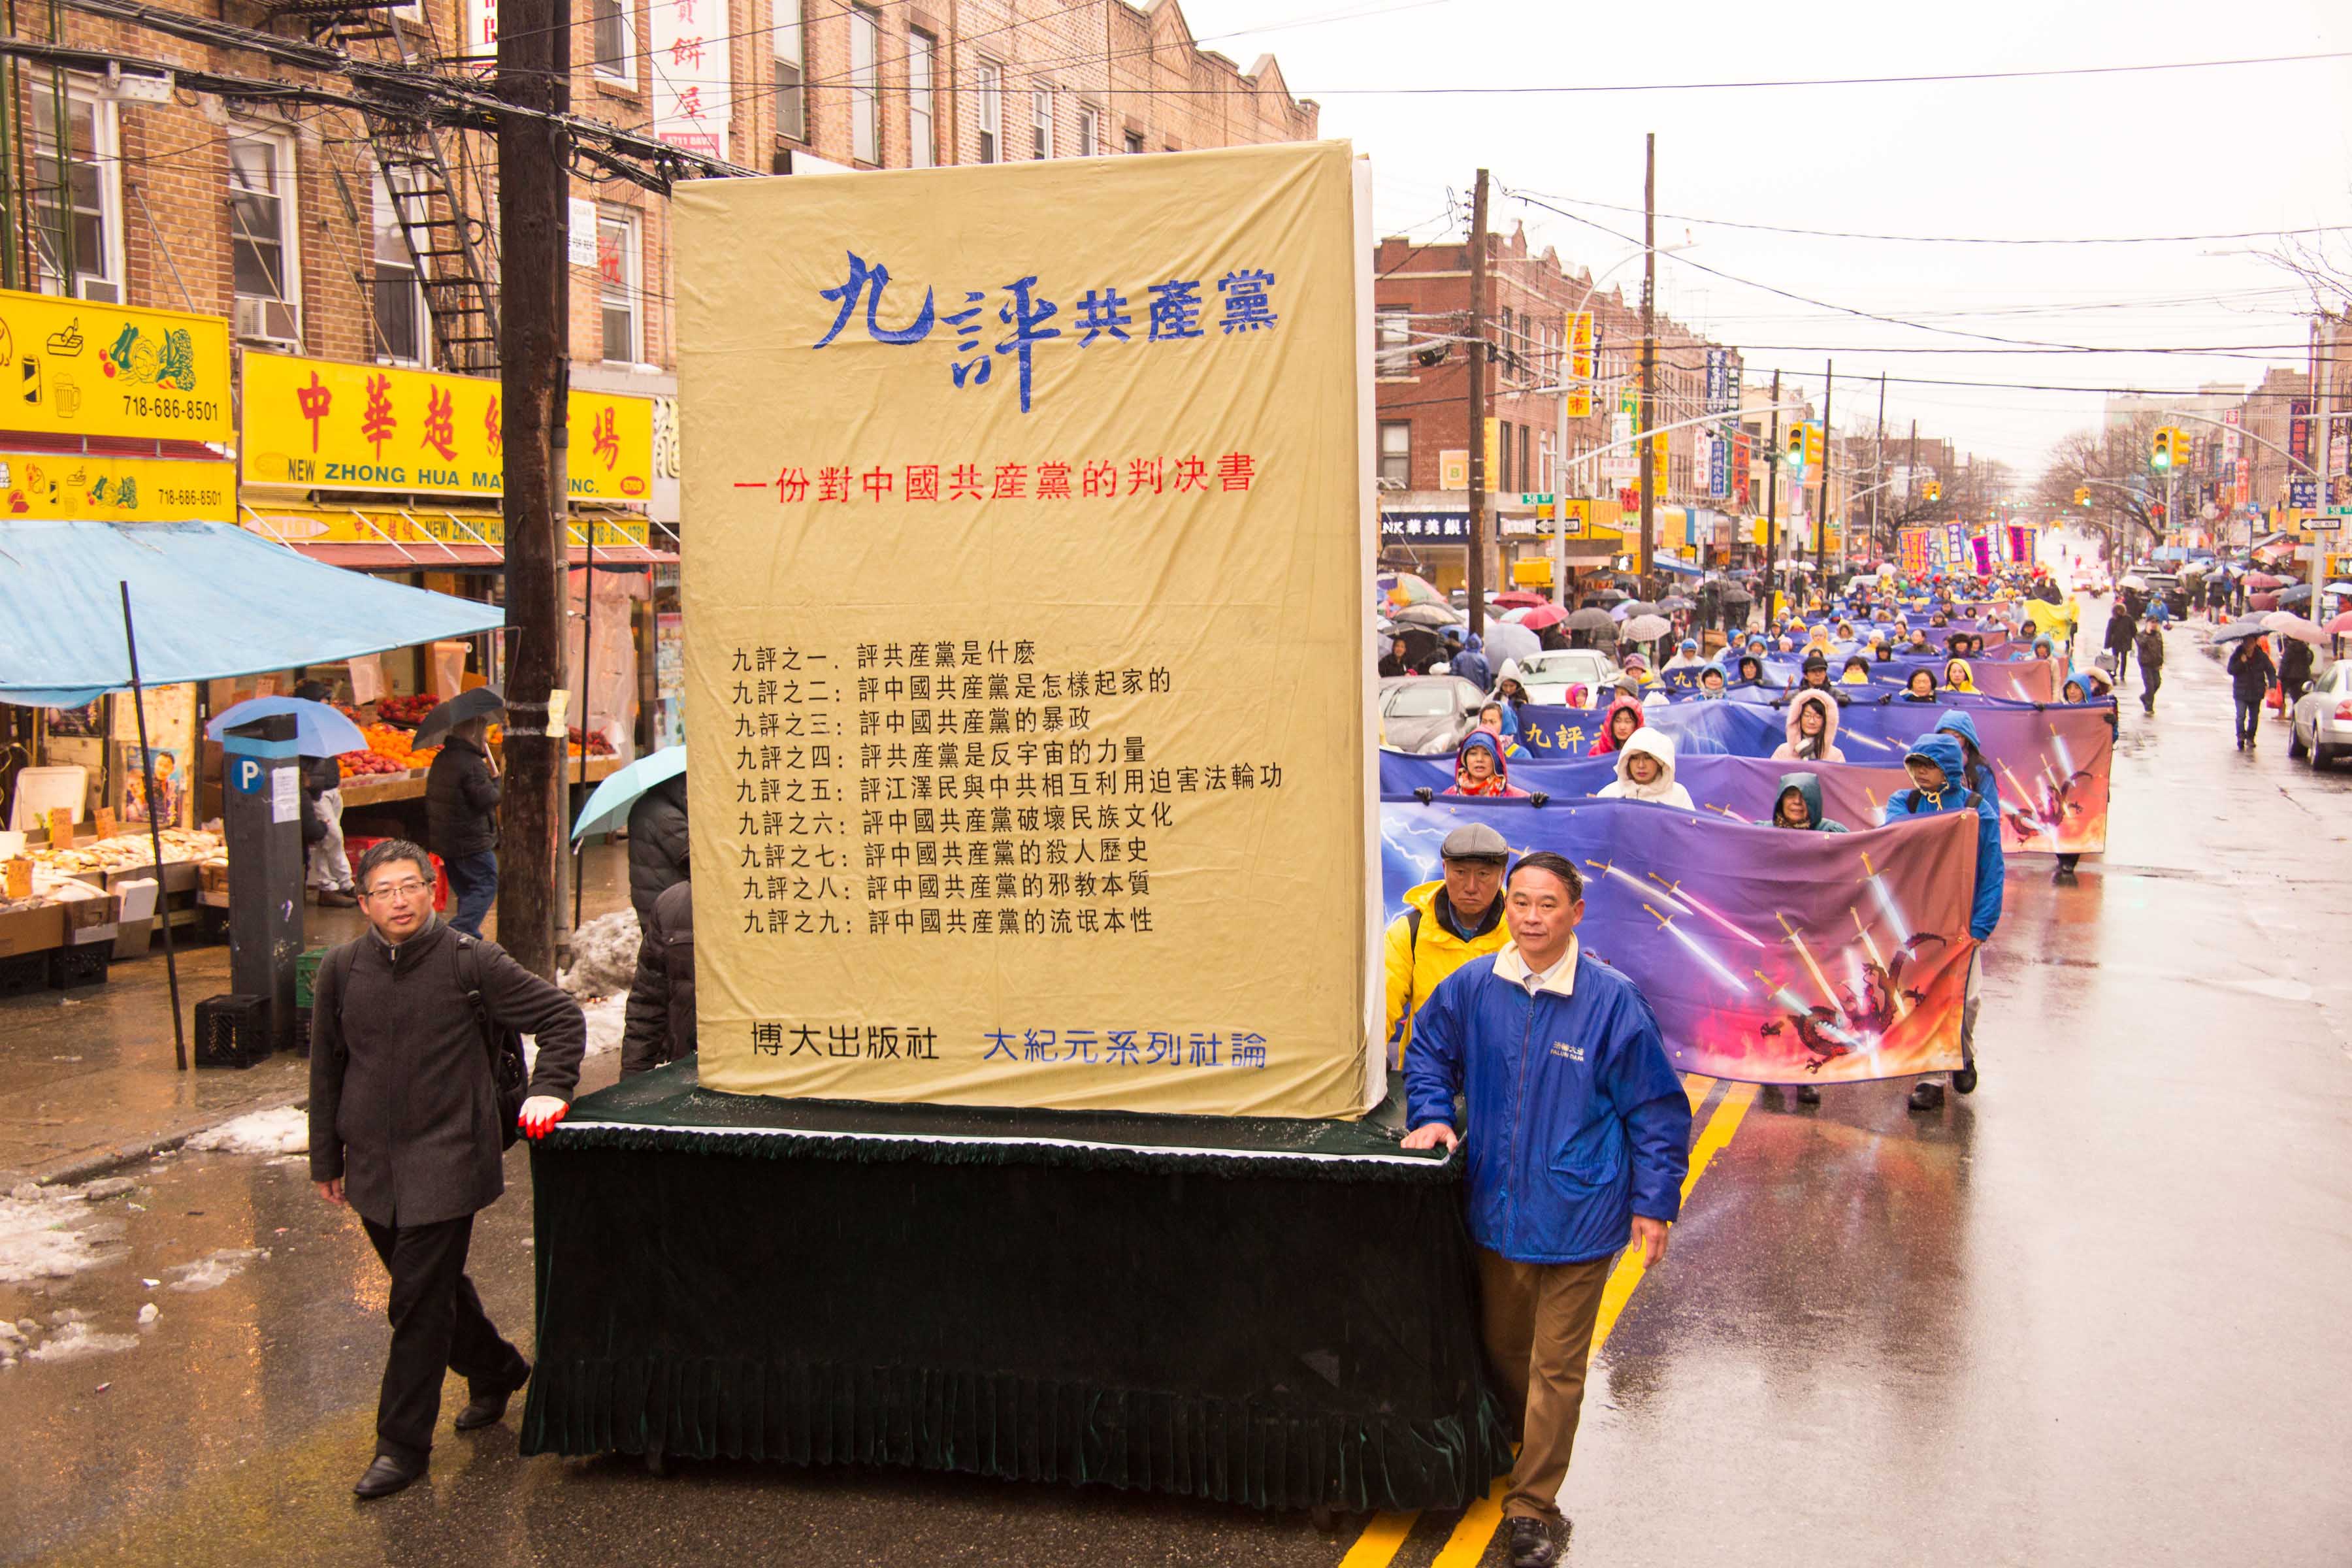 餅
屋
九評共產黨
一份對中國共產黨的判決書
九評之一．評共產黨是什麽
九評之二：評中國共產黨是怎樣起家的
九評之三：評中國共產黨的暴政
九評之四：評共產黨是反宇宙的力量
九評之五：評江澤民與中共相互利用迫害法輪功
九評之六：評中國共產黨破壞民族文化
九評之七：評中國共產黨的殺人歷史
九評之八：評中國共產黨的邪教本質
九評之九：評中國共產黨的流氓本性
博大出版社 大紀元系列社論
718-686-8501
中華超級 場
NEW ZHONG HUA MA INC.
718-686-8501
中華超級 NEW ZHONG HU
P
NK 華美銀
58 ST
九評
FALUN DAFA